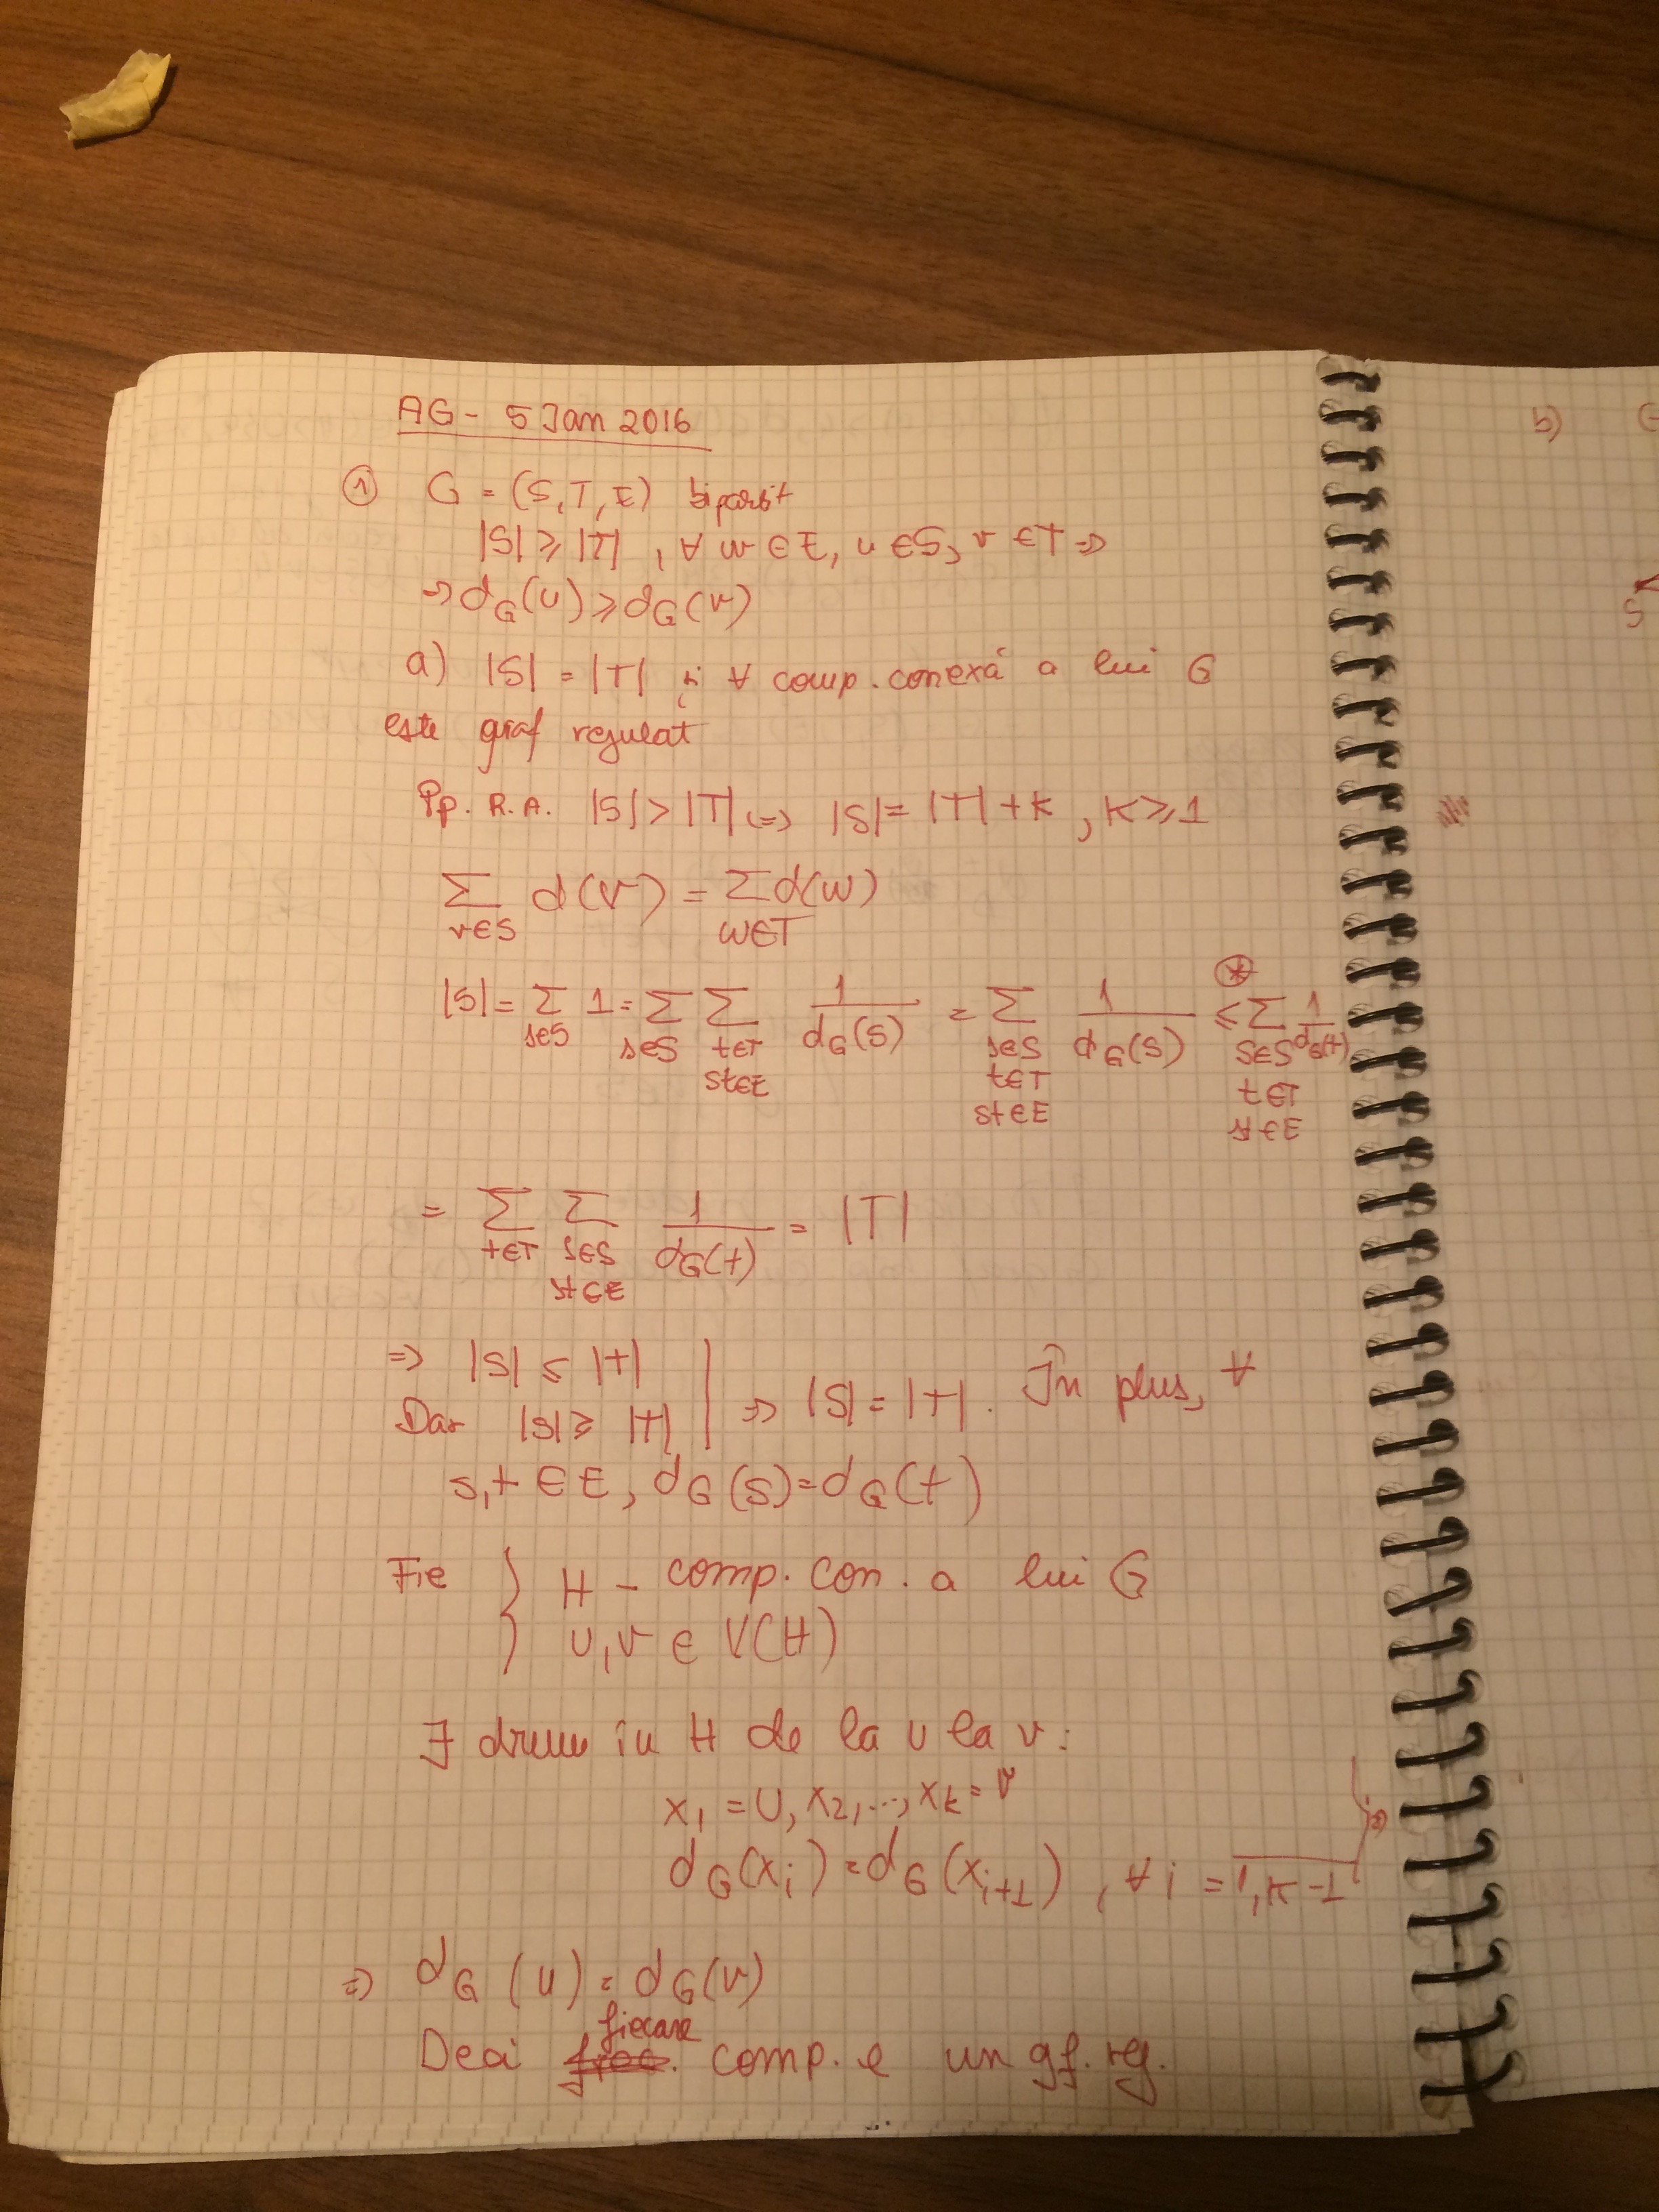 AG - 5 Jan 2016
① G = (S, T, E) bipartit
|S| ≥ |T| , ∀ uv ∈ E, u ∈ S, v ∈ T ⇒
⇒ d_G(u) ≥ d_G(v)
a) |S| = |T| și ∀ comp. conexă a lui G
este graf regulat
Pp. R.A. |S| > |T| ⇔ |S| = |T| + k , k ≥ 1
∑_{v∈S} d(v) = ∑_{w∈T} d(w)
|S| = ∑_{s∈S} 1 = ∑_{s∈S} ∑_{t∈T, st∈E} 1/d_G(s) = ∑_{s∈S, t∈T, st∈E} 1/d_G(s) ≤^{⊛} ∑_{s∈S, t∈T, st∈E} 1/d_G(t)
= ∑_{t∈T} ∑_{s∈S, st∈E} 1/d_G(t) = |T|
⇒ |S| ≤ |T|
Dar |S| ≥ |T| | ⇒ |S| = |T|. În plus, ∀
s,t ∈ E, d_G(s) = d_G(t)
Fie } H - comp. con. a lui G
u, v ∈ V(H)
∃ drum în H de la u la v:
x_1 = u, x_2, ..., x_k = v
d_G(x_i) = d_G(x_{i+1}) , ∀ i = 1, k-1
⇒ d_G(u) = d_G(v)
Deci fiecare comp. e un gf. reg.
b)
S